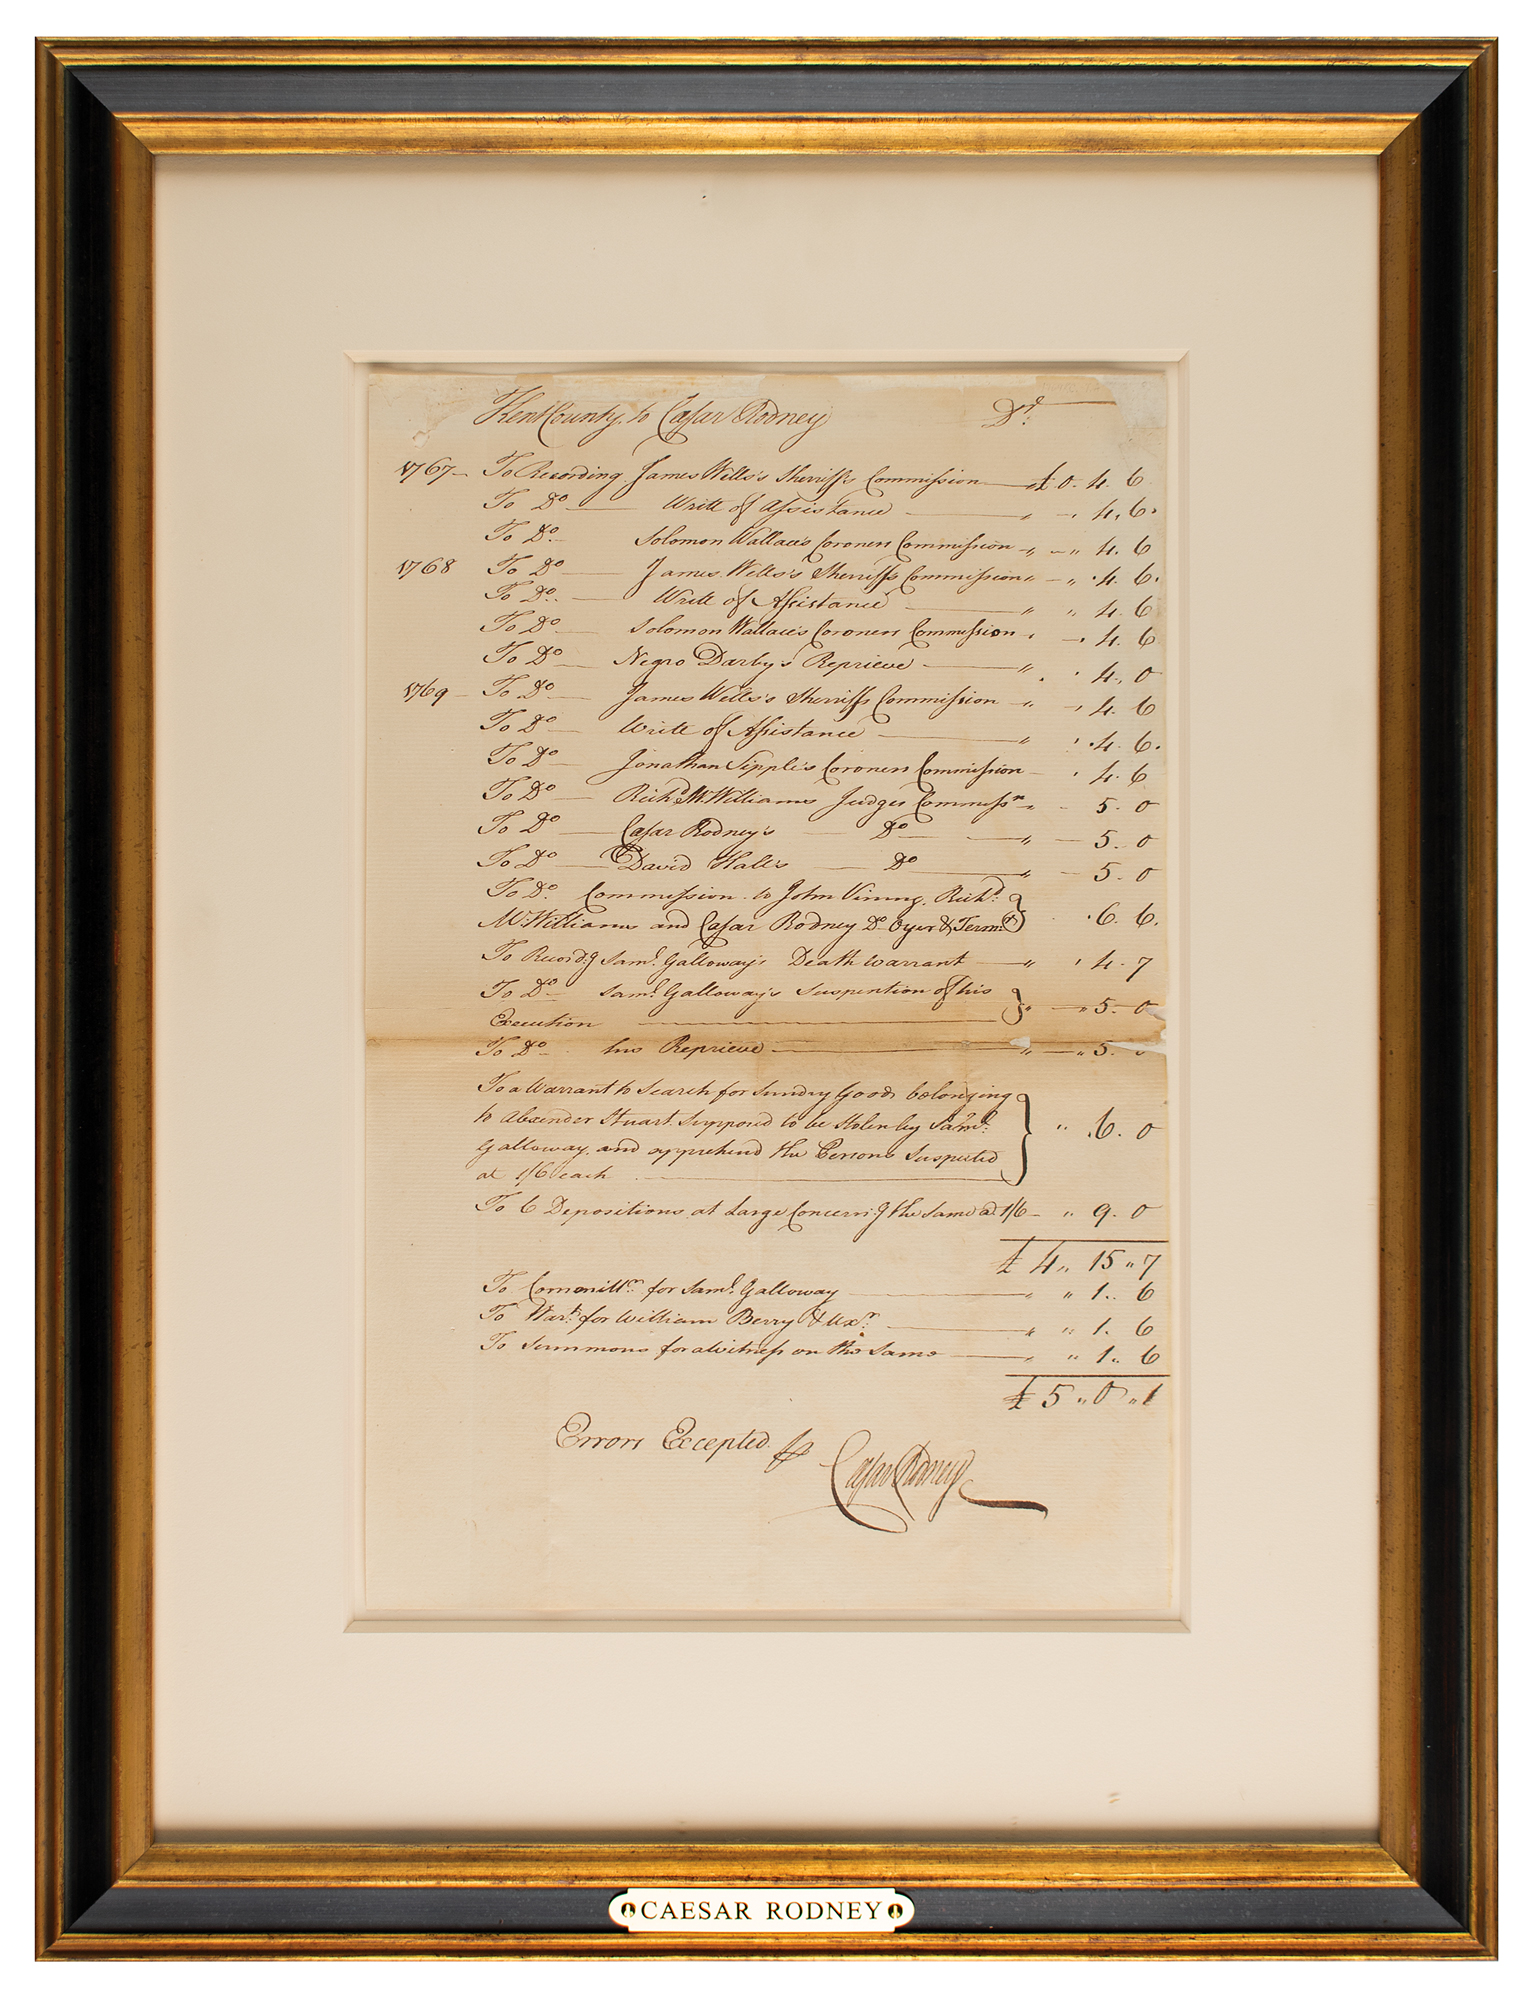 Kent County, to Cæsar Rodney Dr.
1767— To Recording James Wells's Sherriffs Commission £ 0. 4. 6
To Do — Writt of Assistance — " — 4. 6.
To Do. Solomon Wallace's Coroners Commission — " — " 4. 6
1768 To Do — James Wells's Sherriffs Commission " — " 4. 6.
To Do. — Writt of Assistance — " " 4. 6
To Do — Solomon Wallace's Coroners Commission " — 4. 6
To Do — Negro Darby's Reprieve — " 4. 0
1769 — To Do — James Wells's Sherriffs Commission — " — 4. 6
To Do — Writt of Assistance — " 4. 6.
To Do — Jonathan Sipple's Coroners Commission — 4. 6
To Do — Richd. McWilliams Judges Commissn " — 5. 0
To Do — Cæsar Rodney's — Do — " — 5. 0
To Do — David Hall's — Do — " — 5. 0
To Do. Commission to John Vining, Richd.
McWilliams and Cæsar Rodney Do Oyer & Termr. 6. 6.
To Recordg Saml. Galloway's Death warrant — " 4. 7
To Do — Saml. Galloway's Suspention of his
Execution — " — " 5. 0
To Do — his Reprieve — " — " 5.
To a Warrant to Search for Sundry Goods belonging
to Alexender Stuart Supposed to be Stolen by Saml.
Galloway, and apprehend the Persons Suspected
at 1/6 each — " 6. 0
To 6 Depositions at Large Concerng the Same a 1/6 — " 9. 0
£ 4 " 15 " 7
To Committr for Saml. Galloway — " " 1. 6
To Wart. for William Berry & Uxr. — " " 1. 6
To Summons for a Witness on the Same — " " 1. 6
£ 5 " 0 " 1
Errors Excepted
Cæsar Rodney
CAESAR RODNEY